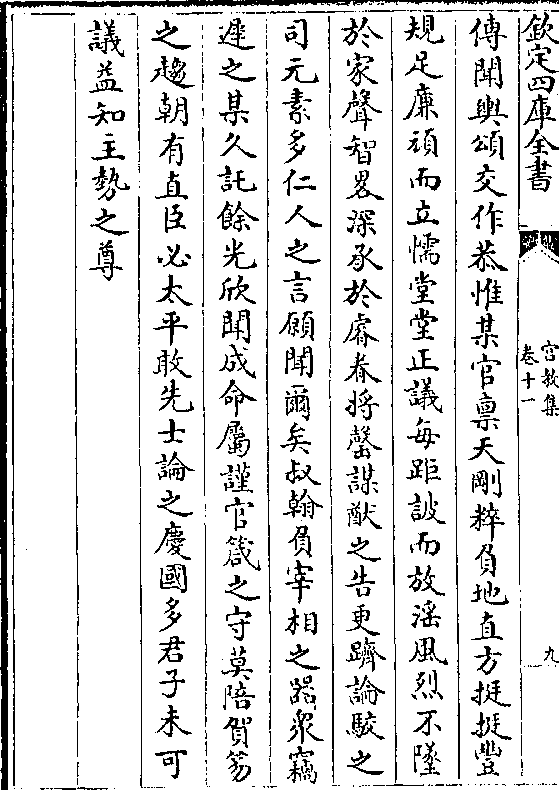 欽定四庫全書
宫教集
卷十一
九
傳聞輿頌交作恭惟某官禀天剛粹負地直方挺挺豐
規足廉頑而立懦堂堂正議每距詖而放淫風烈不墜
於家聲智畧深承於睿眷將罄謀猷之告更躋論駮之
司元素多仁人之言願聞爾矣叔翰負宰相之器衆竊
遲之某久託餘光欣聞成命屬謹官箴之守莫陪賀笏
之趨朝有直臣必太平敢先士論之慶國多君子未可
議益知主勢之尊